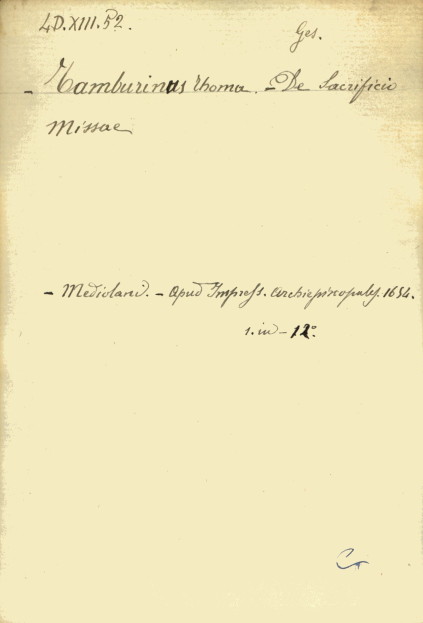 4D.XIII.52.
Ges.
- Tamburinus Thoma. - De Sacrificio
Missae
- Mediolani. - Apud Impress. Archiepiscopales. 1654.
1. in - 12°.